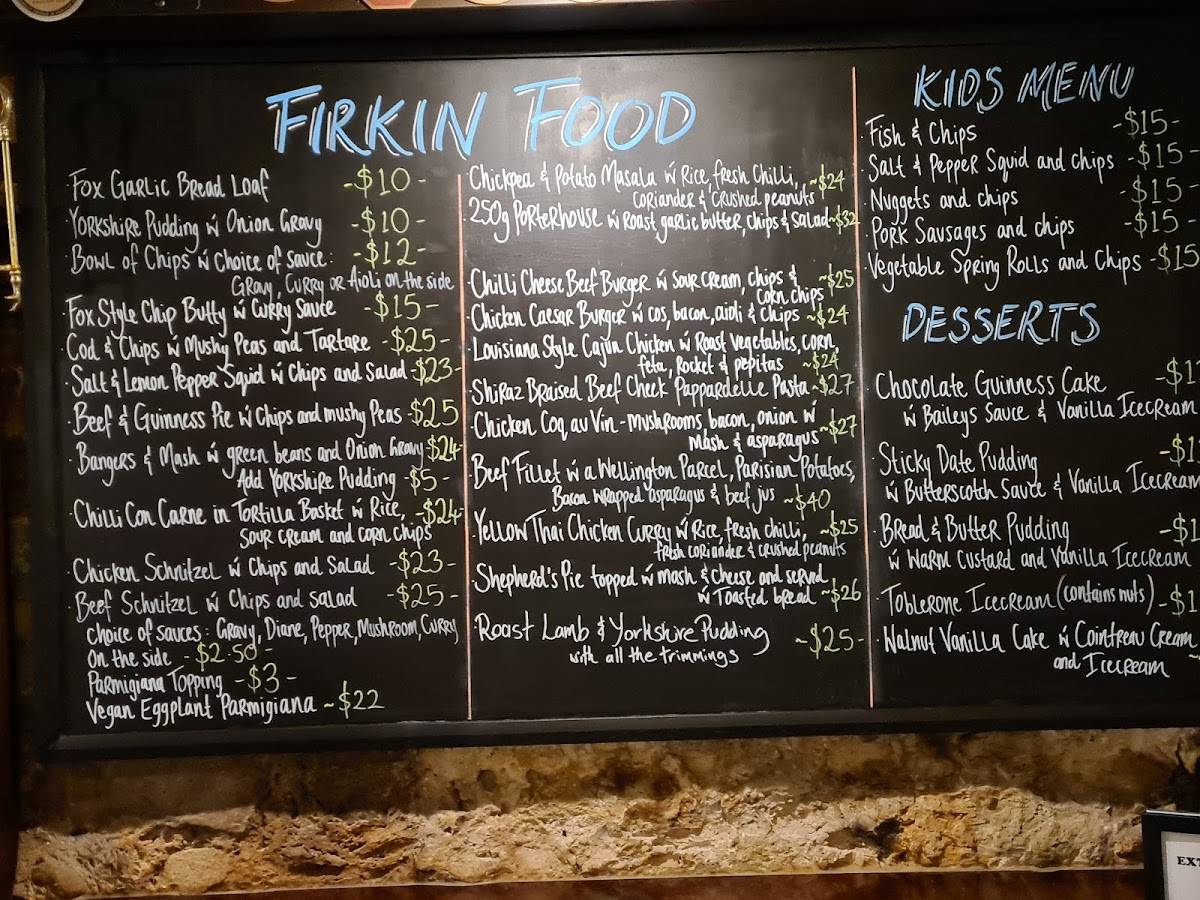 FIRKIN FOOD
· Fox Garlic Bread Loaf -$10-
· Yorkshire Pudding w̄ Onion Gravy -$10-
· Bowl of Chips w̄ choice of sauce: -$12-
Gravy, Curry or Aioli on the side
· Fox Style Chip Butty w̄ Curry Sauce -$15-
· Cod & Chips w̄ Mushy Peas and Tartare -$25-
· Salt & Lemon Pepper Squid w̄ Chips and Salad -$23-
· Beef & Guinness Pie w̄ Chips and mushy Peas -$25
· Bangers & Mash w̄ green beans and Onion Gravy -$24
Add Yorkshire Pudding -$5-
· Chilli Con Carne in Tortilla Basket w̄ Rice, -$24-
Sour cream and corn chips
· Chicken Schnitzel w̄ Chips and Salad -$23-
· Beef Schnitzel w̄ Chips and salad -$25-
choice of sauces: Gravy, Diane, Pepper, Mushroom, Curry
On the side -$2.50-
Parmigiana Topping -$3-
Vegan Eggplant Parmigiana ~$22
· Chickpea & Potato Masala w̄ Rice, fresh Chilli, ~$24
coriander & crushed peanuts
· 250g Porterhouse w̄ Roast garlic butter, chips & Salad ~$32
· Chilli Cheese Beef Burger w̄ sour cream, chips & ~$25
corn chips
· Chicken Caesar Burger w̄ cos, bacon, aioli & chips ~$24
· Louisiana Style Cajun Chicken w̄ Roast Vegetables, corn,
feta, Rocket & pepitas ~$24
· Shiraz Braised Beef Cheek Pappardelle Pasta ~$27
· Chicken Coq au Vin - mushrooms, bacon, onion w̄
mash & asparagus ~$27
· Beef Fillet w̄ a Wellington Parcel, Parisian Potatoes,
Bacon wrapped asparagus & beef jus ~$40
· Yellow Thai Chicken Curry w̄ Rice, fresh chilli, ~$25
fresh coriander & crushed peanuts
· Shepherd's Pie topped w̄ mash & cheese and served
w̄ Toasted bread ~$26
· Roast Lamb & Yorkshire Pudding ~$25-
with all the trimmings
KIDS MENU
· Fish & Chips -$15-
· Salt & Pepper Squid and chips -$15-
· Nuggets and chips -$15-
· Pork Sausages and chips -$15-
· Vegetable Spring Rolls and Chips -$15
DESSERTS
· Chocolate Guinness Cake
w̄ Baileys Sauce & Vanilla Icecream
· Sticky Date Pudding
w̄ Butterscotch Sauce & Vanilla Icecream
· Bread & Butter Pudding
w̄ Warm Custard and Vanilla Icecream
· Toblerone Icecream (contains nuts)
· Walnut Vanilla Cake w̄ Cointreau Cream
and Icecream